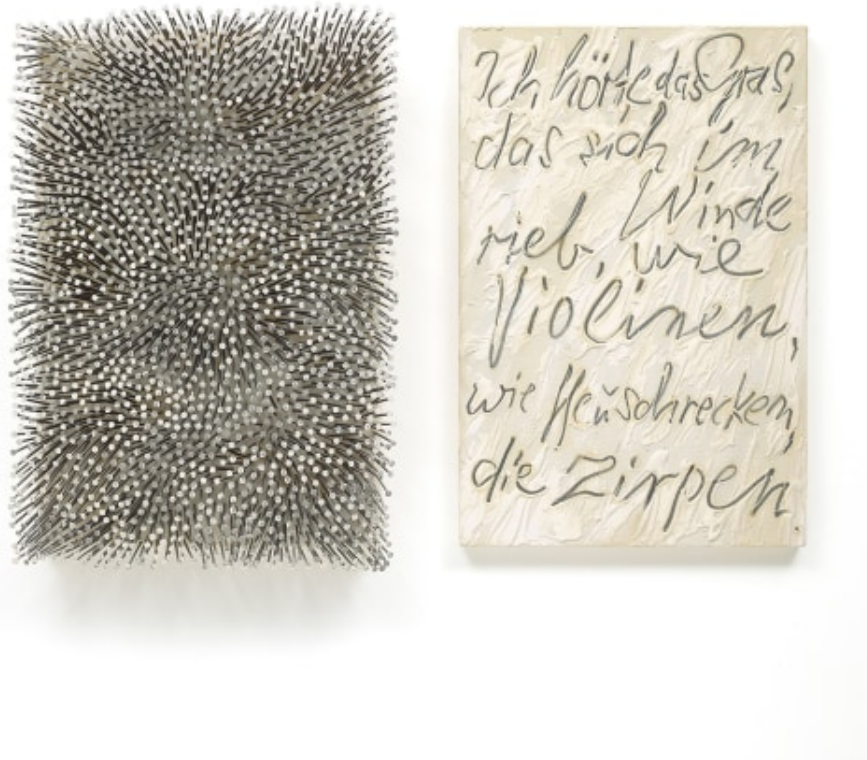 Ich hörte das Gras,
das sich im
Winde
rieb, wie
Violinen,
wie Heuschrecken,
die Zirpen